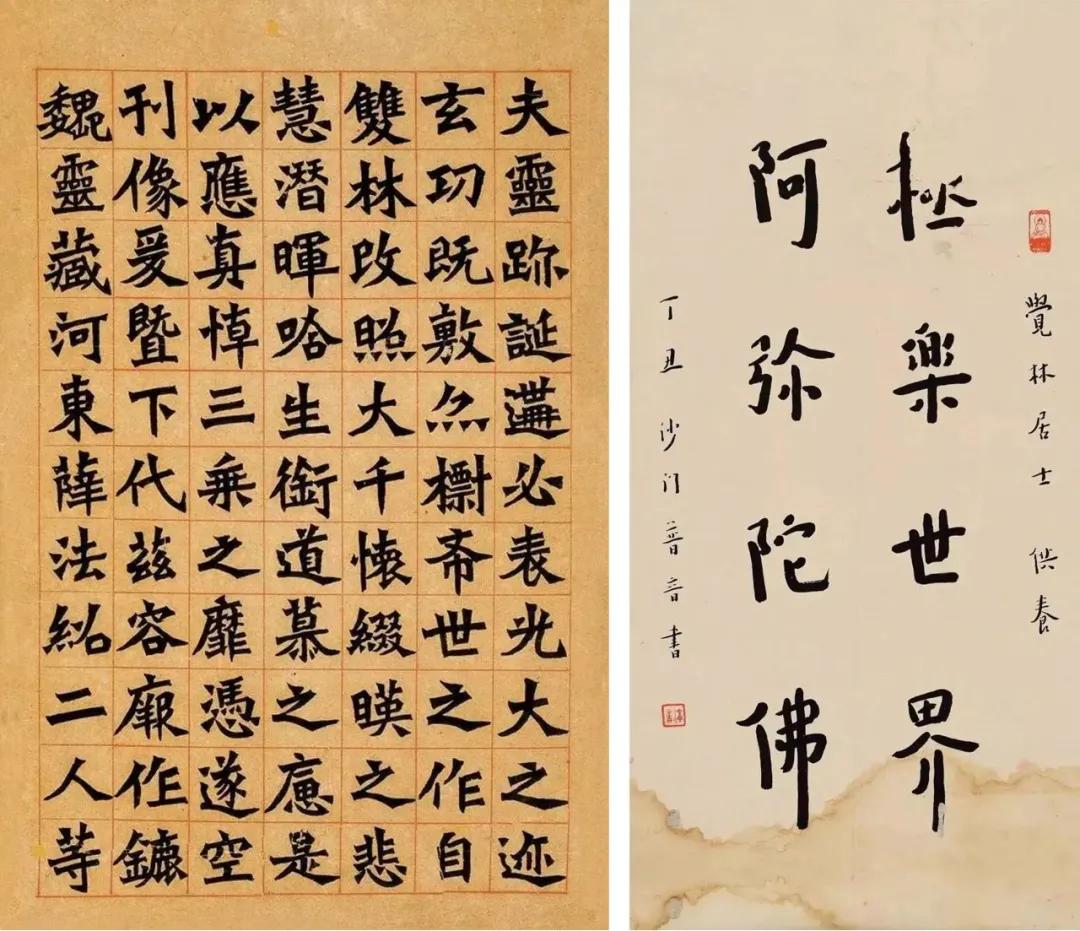 夫靈跡誕遘必表光大之迹
玄功既敷亦摽希世之作自
雙林改照大千懷綴暎之悲
慧潛暉唅生銜道慕之痛是
以應真悼三乘之靡憑遂空
刊像爰暨下代茲容厥作鑣
魏靈藏河東薛法紹二人等
覺林居士 供養
極樂世界
阿弥陀佛
丁丑 沙门普音書